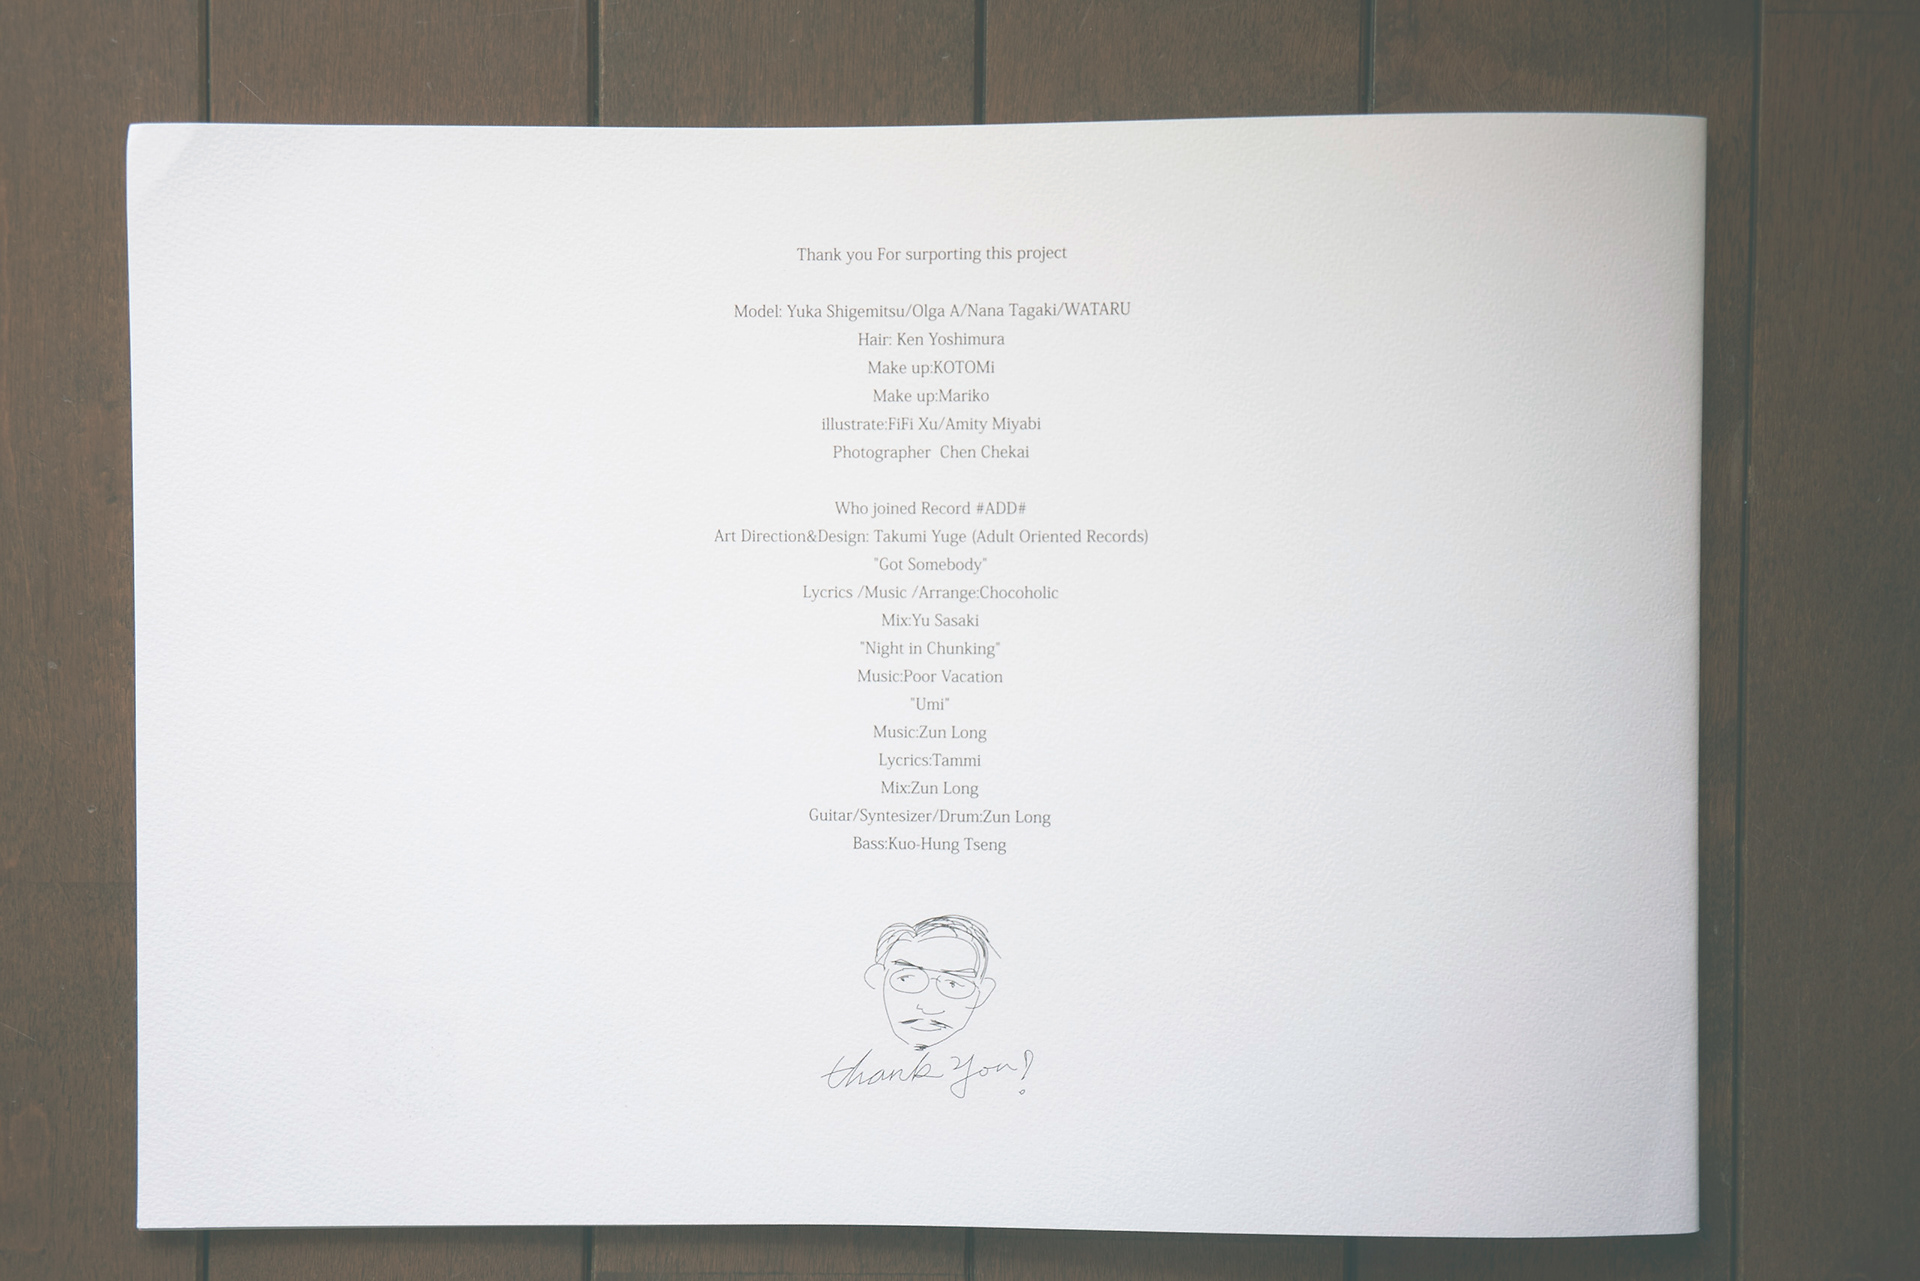 Thank you For surporting this project
Model: Yuka Shigemitsu/Olga A/Nana Tagaki/WATARU
Hair: Ken Yoshimura
Make up:KOTOMi
Make up:Mariko
illustrate:FiFi Xu/Amity Miyabi
Photographer  Chen Chekai
Who joined Record #ADD#
Art Direction&Design: Takumi Yuge (Adult Oriented Records)
"Got Somebody"
Lycrics /Music /Arrange:Chocoholic
Mix:Yu Sasaki
"Night in Chunking"
Music:Poor Vacation
"Umi"
Music:Zun Long
Lycrics:Tammi
Mix:Zun Long
Guitar/Syntesizer/Drum:Zun Long
Bass:Kuo-Hung Tseng
thank you!